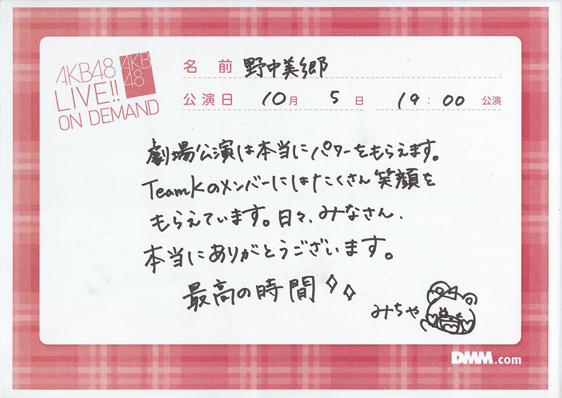 AKB48
LIVE!!
ON DEMAND
AKB
48
名 前 野中美郷
公演日 10月 5日 19:00 公演
劇場公演は本当にパターをもらえます。
TeamKのメンバーにはたくさん笑顔を
もらえています。日々、みなさん、
本当にありがとうございます。
最高の時間
みちゃ
DMM.com